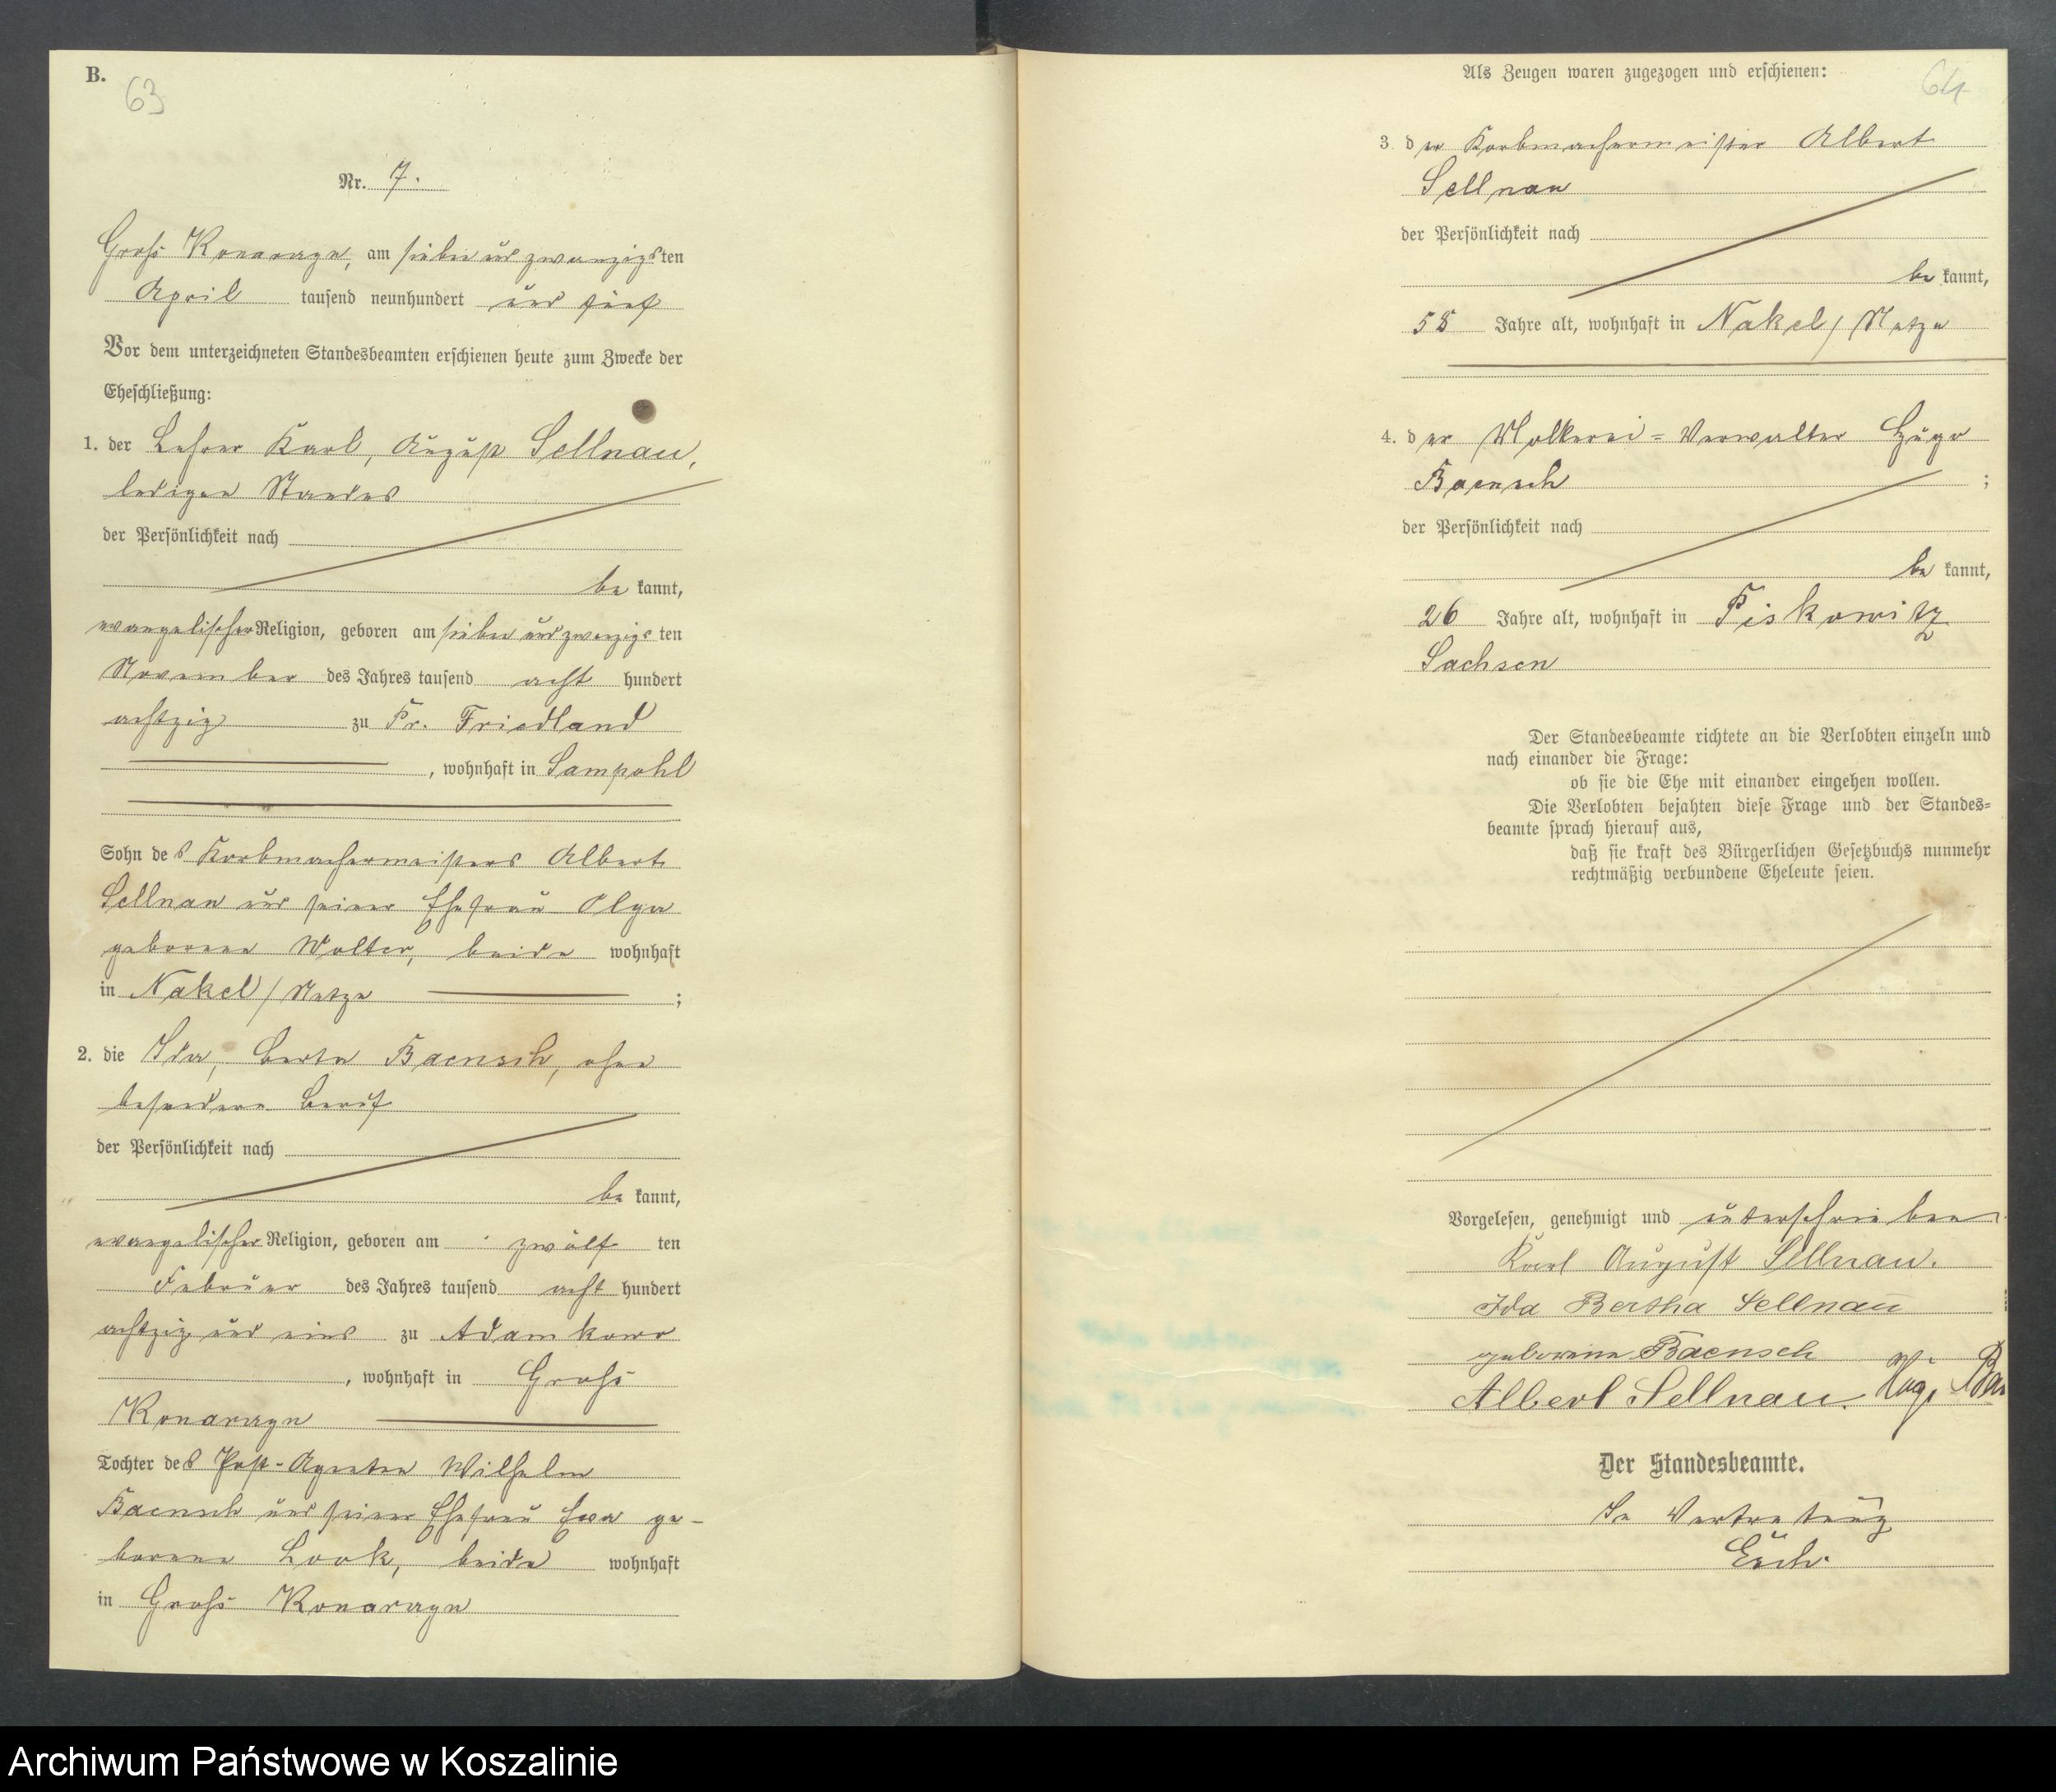 B.
63
Nr. 7.
Groß Konarzyn, am sieben und zwanzigsten
April tausend neunhundert und fünf
Vor dem unterzeichneten Standesbeamten erschienen heute zum Zwecke der
Eheschließung:
1. der Lehrer Karl, August Sellnau,
ledigen Standes
der Persönlichkeit nach
be kannt,
evangelischer Religion, geboren am sieben und zwanzigsten
November des Jahres tausend acht hundert
achtzig zu Pr. Friedland
, wohnhaft in Sampohl
Sohn des Korbmachermeisters Albert
Sellnau und seiner Ehefrau Olga
geborene Wolter, beide wohnhaft
in Nakel / Netze ;
2. die Ida, Berta Baensch, ohne
besonderen Beruf
der Persönlichkeit nach
be kannt,
evangelischer Religion, geboren am zwölf ten
Februar des Jahres tausend acht hundert
achtzig und eins zu Adamkowo
, wohnhaft in Groß
Konarzyn
Tochter des Post-Agenten Wilhelm
Baensch und seiner Ehefrau Eva ge-
borene Look, beide wohnhaft
in Groß Konarzyn
Als Zeugen waren zugezogen und erschienen:
64
3. der Korbmachermeister Albert
Sellnau
der Persönlichkeit nach
be kannt,
58 Jahre alt, wohnhaft in Nakel / Netze
4. der Molkerei=Verwalter Hugo
Baensch ;
der Persönlichkeit nach
be kannt,
26 Jahre alt, wohnhaft in Piskowitz
Sachsen
Der Standesbeamte richtete an die Verlobten einzeln und
nach einander die Frage:
ob sie die Ehe mit einander eingehen wollen.
Die Verlobten bejahten diese Frage und der Standes=
beamte sprach hierauf aus,
daß sie kraft des Bürgerlichen Gesetzbuchs nunmehr
rechtmäßig verbundene Eheleute seien.
Vorgelesen, genehmigt und unterschrieben
Karl August Sellnau.
Ida Bertha Sellnau
geborene Baensch
Albert Sellnau. Hugo Bae
Der Standesbeamte.
In Vertretung
Archiwum Państwowe w Koszalinie